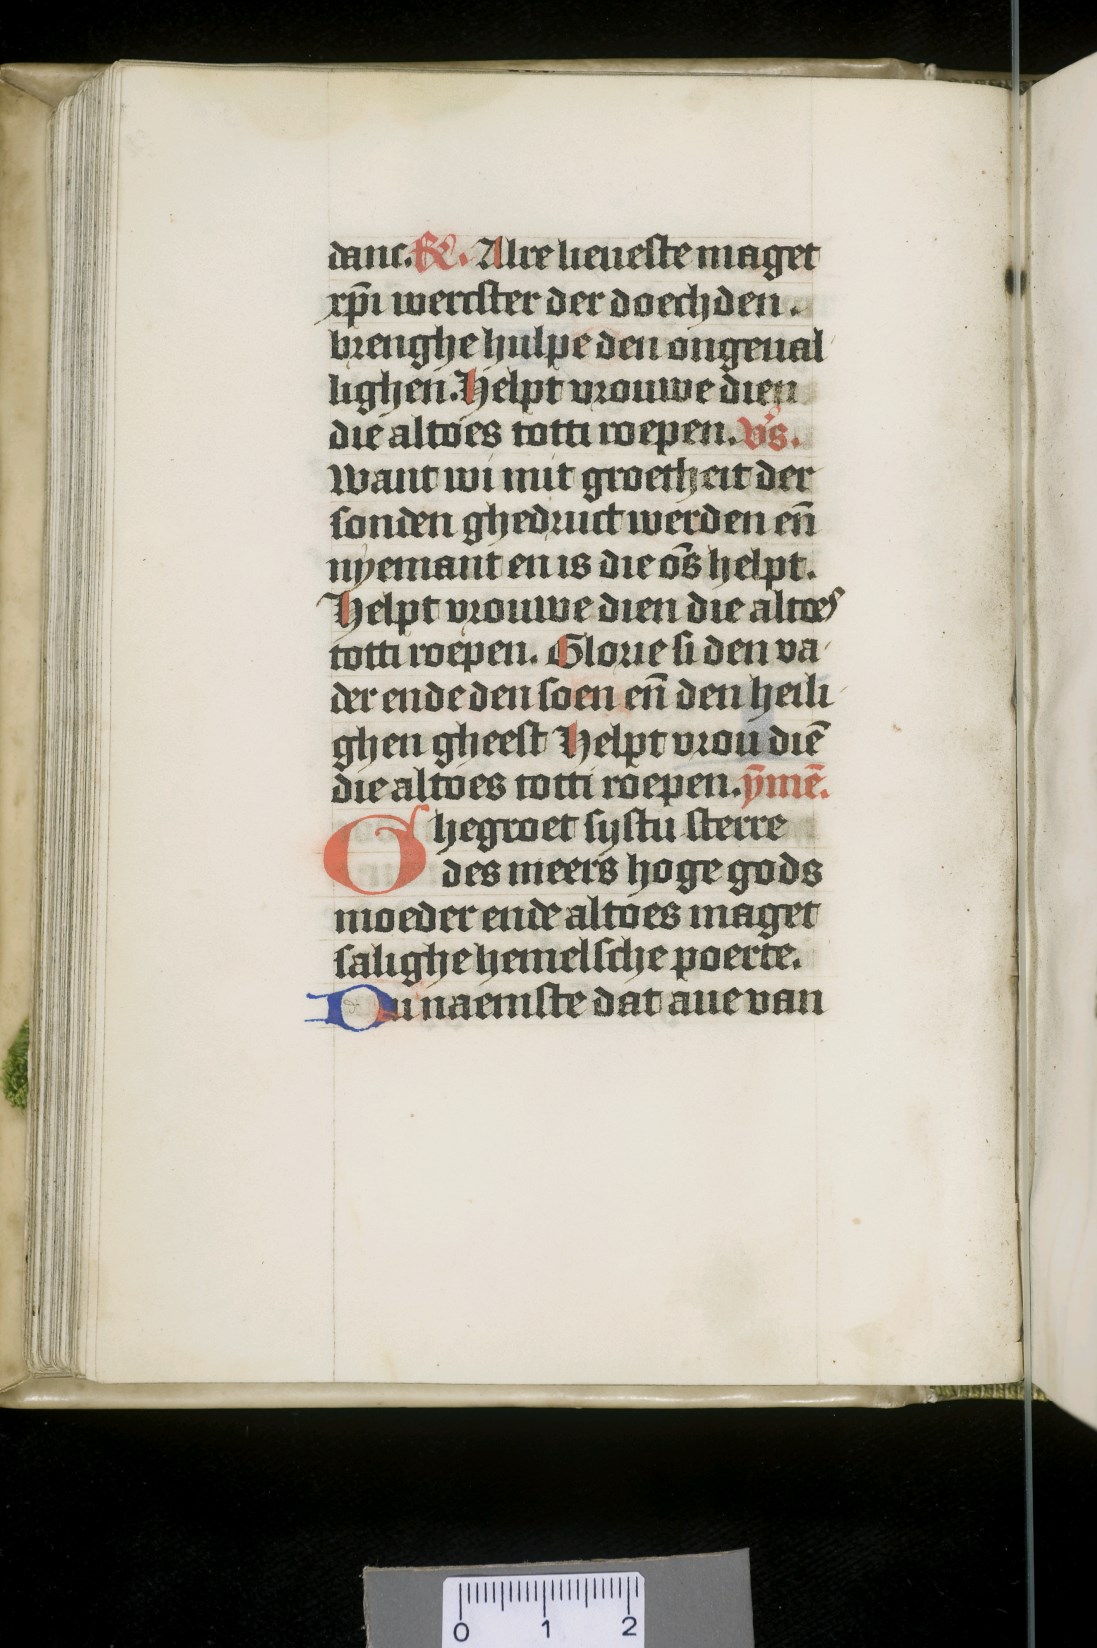 danc. R. Alre lieueste maget
xp̄i wercster der doechden.
brenghe hulpe den ongeual
lighen. Helpt vrouwe dien
die altoes totti roepen. v̓s.
Want wi mit groetheit der
sonden ghedruct werden en̄
nyemant en is die o̅s helpt.
Helpt vrouwe dien die altoes
totti roepen. Glorie si den va
der ende den soen en̄ den heili
ghen gheest Helpt vrou diē
die altoes totti roepen. ȳmē.
Ghegroet systu sterre
des meers hoge gods
moeder ende altoes maget
salighe hemelsche poerte.
Du naemste dat aue van
0 1 2